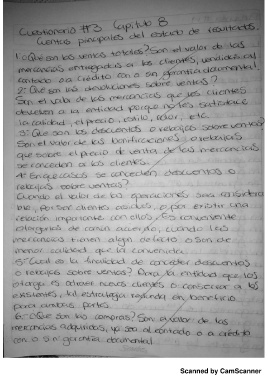 Cuestionario #3 Capitulo 8
Cuentas principales del estado de resultados.
1. ¿Que son las ventas totales? Son el valor de las
mercancias entregadas a los clientes, vendidas al
contado o a crédito con o sin garantia documental.
2. ¿Que son las devoluciones sobre ventas?
Son el valor de las mercancias que los clientes
devuelven a la entidad porque no les satisface
la calidad, el precio, estilo, color, etc.
3. ¿Que son los descuentos o rebajas sobre ventas?
Son el valor de las bonificaciones o rebajas,
que sobre el precio de venta de las mercancias
se conceden a los clientes.
4. En que casos se conceden descuentos o
rebajas sobre ventas?
Cuando el valor de las operaciones sea considera
ble, por ser clientes asiduos, o por existir una
relación importante con ellos, Es conveniente
otorgarlos de comun acuerdo, cuando las
mercancias tienen algun defecto o son de
menor calidad que la convenida.
5. ¿Cual es la finalidad de conceder descuentos
o rebajas sobre ventas? Para la entidad que los
otorga es atraer nuevos clientes o conservar a los
existentes, tal estrategia redunda en beneficio
para ambas partes
6. ¿Que son las compras? Son el valor de las
mercancias adquiridas, ya sea al contado o a crédito
con o sin garantia documental
Scanned by CamScanner